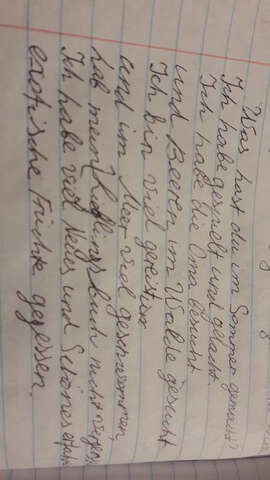 Was hast du im Sommer gemacht?
Ich habe gespielt und gelacht.
Ich habe die Oma besucht
und Beeren im Walde gesucht
Ich bin viel gereist
und im Meer viel geschwommen,
hab mein Lieblingsbuch nicht
Ich habe viel Neues und Schönes
exotische Früchte gegessen.